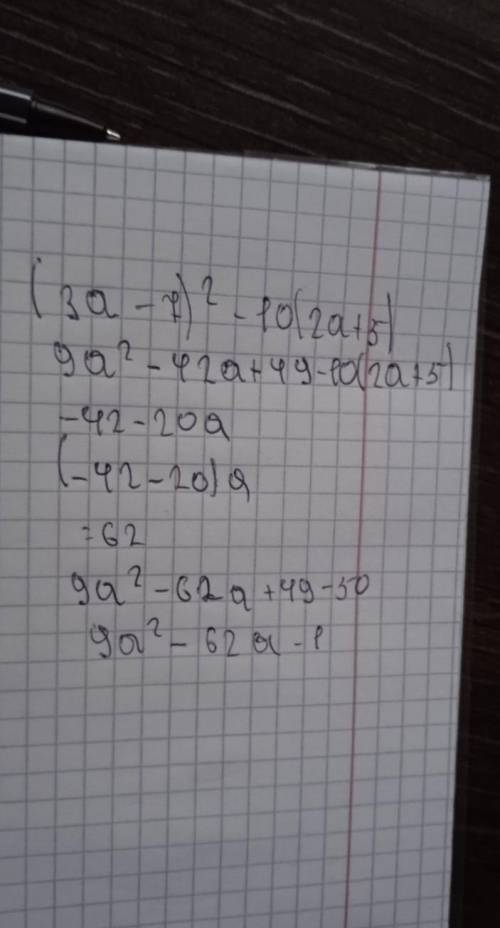 (3a - 7)² - 10(2a+5)
9a² - 42a + 49 - 10(2a+5)
-42 - 20a
(-42 - 20)a
= 62
9a² - 62a + 49 - 50
9a² - 62a - 1